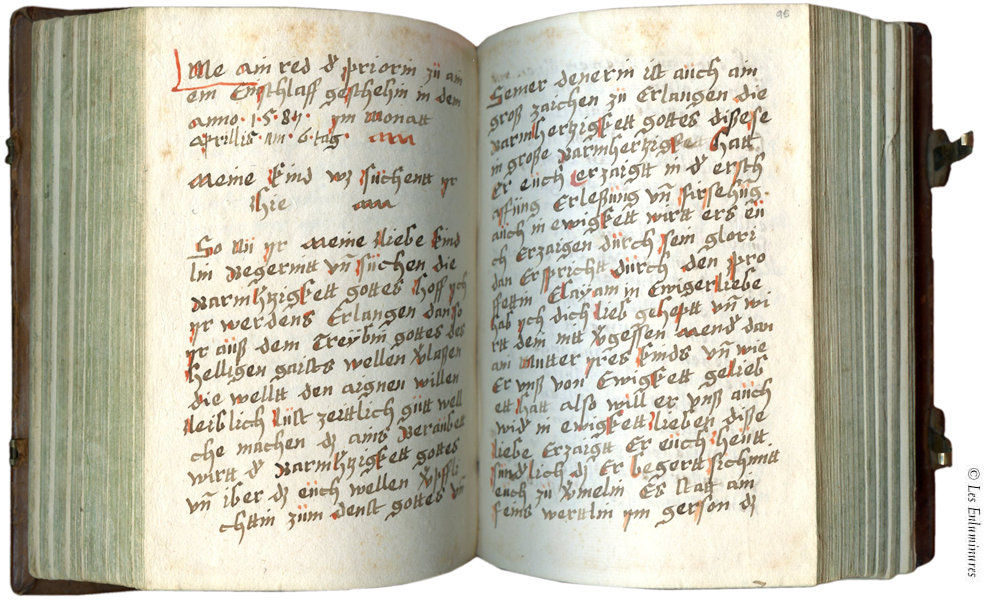 Me ain red dˢ priorin zü am
ein Enschlaff geschehin in dem
anno · 1 · 5 · 84 · ym Monatt
aprillis · am · 6 · tag ·
Meine kind wz süchentt yr
hie
So Nü yr meine liebe kind
lin Begerintt vn̄ süchen die
Barmhˢtzigkett gottes hoff ych
yr werdens Erlangen dan so
yr auß dem Treybin gottes des
helligen gaists wellen vˢlaßen
die wellt den aignen willen
leiblich lüst zerttlich gütt well
che machen dz ains Beraubett
wirtt dˢ Barmhˢtzigkett gottes
vn̄ iber dz eüch wellen vˢpfli
chttin züm denst gottes vn̄
96
Semer denerin ist aüch ain
groß zaichen zü Erlangen die
Barmhertzigkett gottes dißese
in große Barmhertzigkett hatt
Er eüch erzaigtt in dˢ ersth
affüng Erleßüng vn̄ fürsehüg ·
aüch in ewigkett wirtt ers eü
ch Erzaigen dürch sein glori
dan Er sprichtt dürch den pro
ffettin Esayam in Ewiger liebe
hab ych dich lieb geheptt vn̄ wi
rtt dein nitt vˢgessen mend dan
ain mutter yres kinds vn̄ wie
Er vnß von Ewigkett gelieb
ett hatt also will er vnß aüch
widˢ in ewigkett lieben diße
liebe Erzaigtt Er eüch heütt
sündˢlich dz Er begertt sich mitt
eüch zu vˢmelin Es statt ain
feins werttlin ym gerson dz
© Les Enluminures